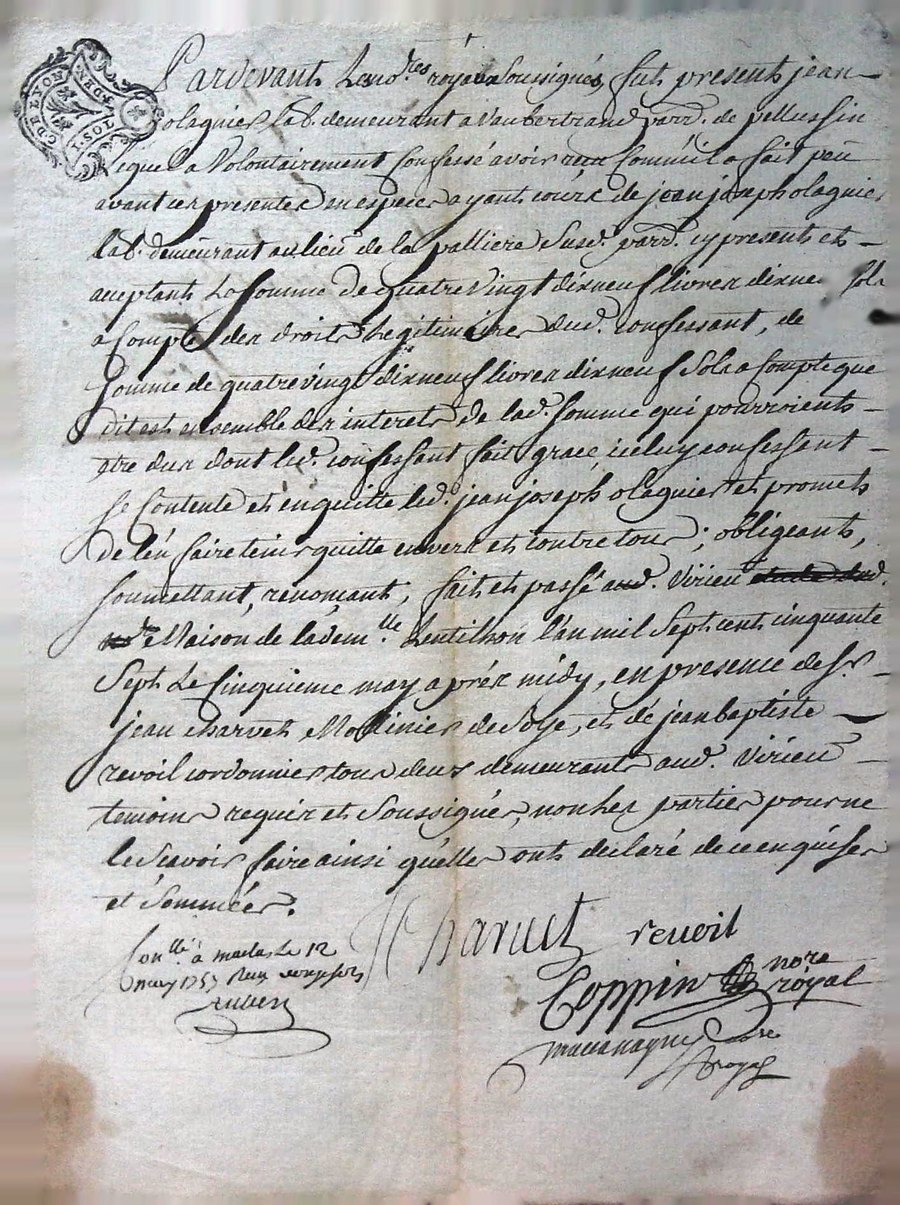 G. DE LYON
1. SOL
Pardevant Les no.res royaux soussignés, fut present jean
olagnier lab. demeurant a Vaubertrand parr.e de pellussin
lequel a Volontairement Confessé avoir recu Comm'il a fait peu
avant ces presentes en especes ayant cours de jean joseph olagnier
lab. demeurant au lieu de la valliere susd. parr.e cy present et
acceptant La somme de quatre vingt dixneuf livres dixneuf sols
a Compte des droits Legitimaires dud. confessant, de
somme de quatre vingt dixneuf livres dixneuf Sols a Compte que
dit est ensemble des interets de lad. somme qui pourroients
etre dus dont led. confessant fait grace, iceluy confessant
se Contente et en quitte led. jean joseph olagnier et promets
de l'en faire tenir quitte envers et contre tous; obligeant,
soumettant, renonçant, fait et passé aud. Virieu
Maison de la dem.lle Lentilhon l'an mil sept cent cinquante
Sept Le Cinquieme may aprés midy, en presence de s.r
jean charvet Moulinier de Soye, et de jean baptiste
revoil cordonnier tous deux demeurant aud. Virieu
temoins requis et soussignés, non les parties pour ne
le scavoir faire ainsi qu'elles ont declaré de ce enquises
et sommées.
Con.llé à maclas Le 12
may 1757 Reçu
J Charuet revoil
Coppin no.re
royal
royal